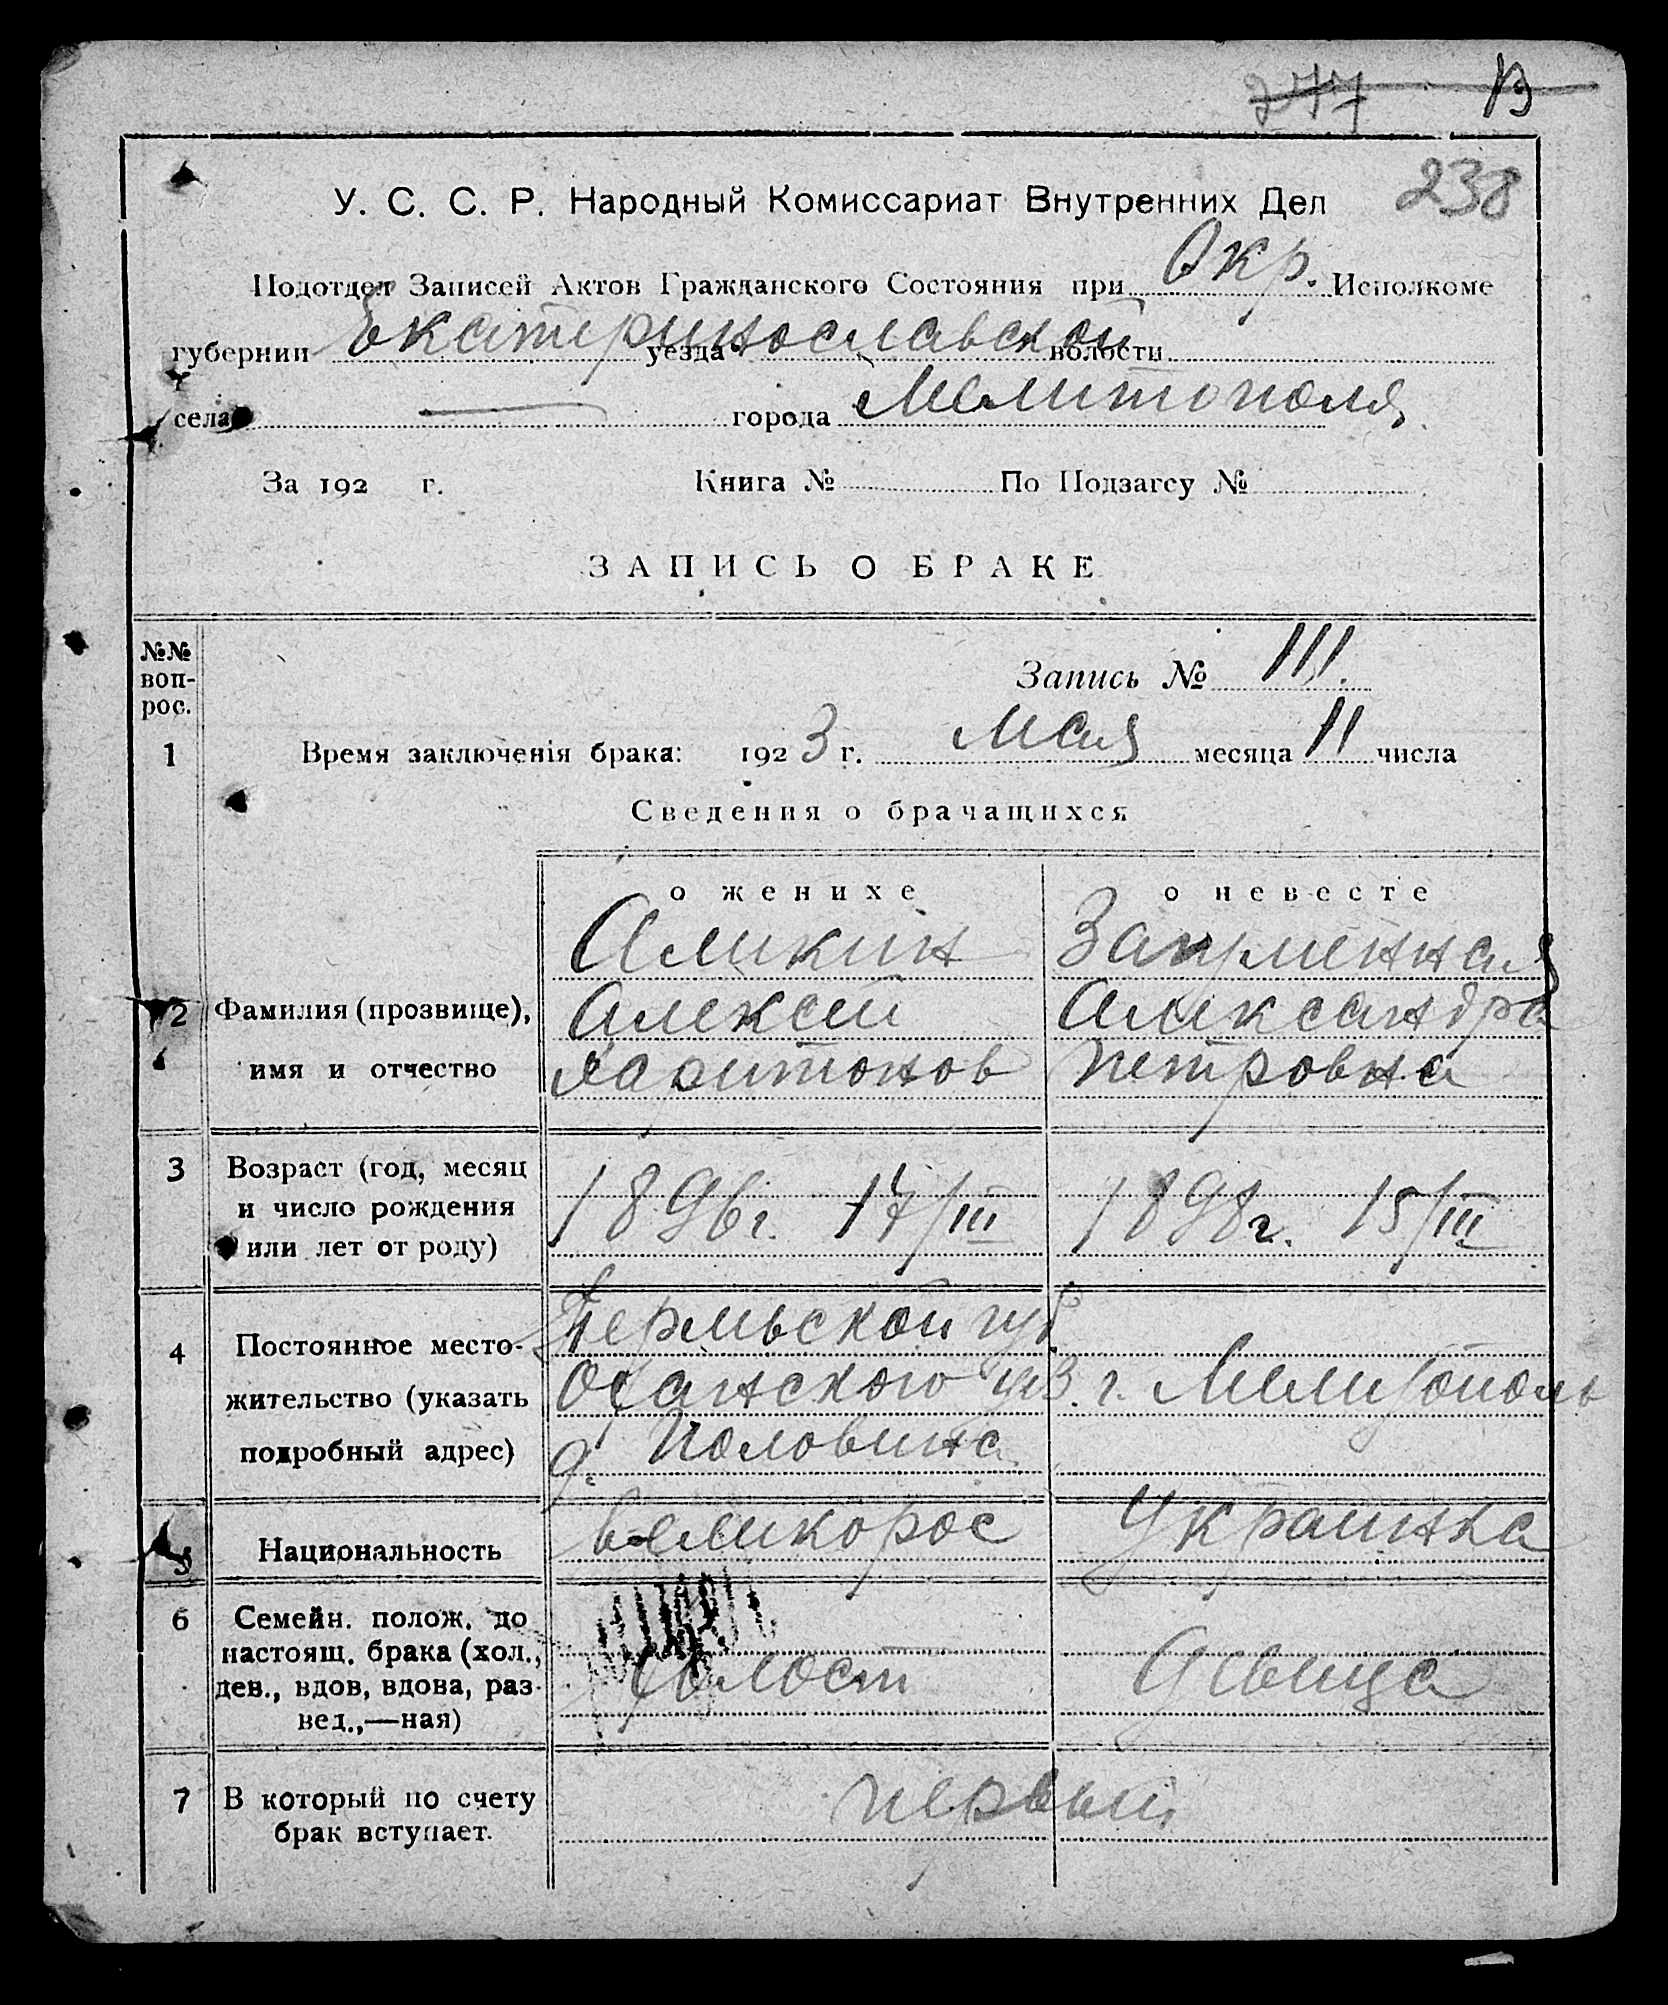 277 В
238
У. С. С. Р. Народный Комиссариат Внутренних Дел
Подотдел Записей Актов Гражданского Состояния при Окр. Исполкоме
губернии Екатеринославской уезда волости
села — города Мелитополя
За 192 г. Книга № По Подзагсу №
ЗАПИСЬ О БРАКЕ
№№ воп- рос.
Запись № 111.
1 Время заключенія брака: 1923 г. мая месяца 11 числа
Сведения о брачащихся
о женихе о невесте
Аликин
2 Фамилия (прозвище), Алексей Александра
имя и отчество Харитонов Петровна
3 Возраст (год, месяц
и число рождения 1896г. 17/III 1898г. 15/III
или лет от роду)
Пермьской губ
4 Постоянное место-
жительство (указать Осанского уез. г. Мелитополь
подробный адрес) д. Половина
5 Национальность великорос Украинка
6 Семейн. полож. до
настоящ. брака (хол.,
дев., вдов, вдова, раз- холост девица
вед.,—ная)
7 В который по счету первый
брак вступает.